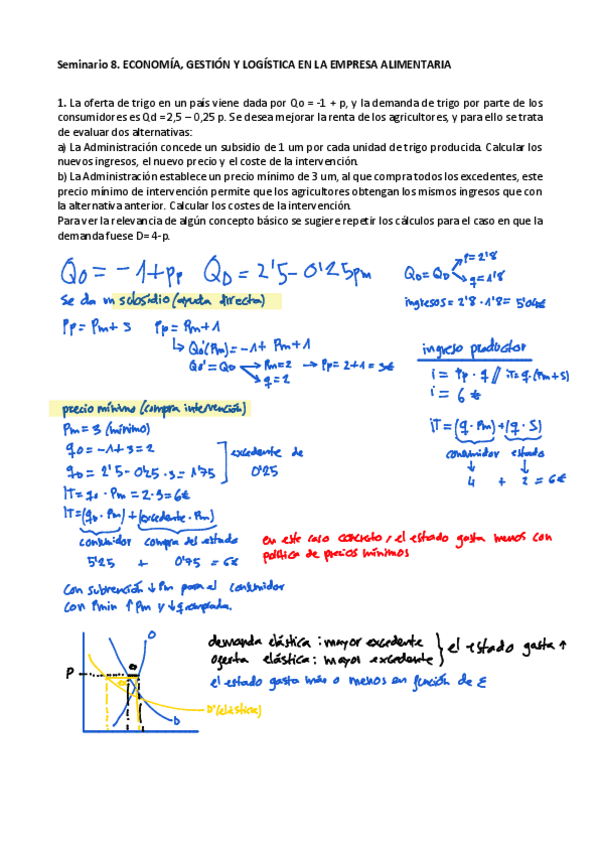 Seminario 8. ECONOMÍA, GESTIÓN Y LOGÍSTICA EN LA EMPRESA ALIMENTARIA
1. La oferta de trigo en un país viene dada por Qo = -1 + p, y la demanda de trigo por parte de los
consumidores es Qd = 2,5 – 0,25 p. Se desea mejorar la renta de los agricultores, y para ello se trata
de evaluar dos alternativas:
a) La Administración concede un subsidio de 1 um por cada unidad de trigo producida. Calcular los
nuevos ingresos, el nuevo precio y el coste de la intervención.
b) La Administración establece un precio mínimo de 3 um, al que compra todos los excedentes, este
precio mínimo de intervención permite que los agricultores obtengan los mismos ingresos que con
la alternativa anterior. Calcular los costes de la intervención.
Para ver la relevancia de algún concepto básico se sugiere repetir los cálculos para el caso en que la
demanda fuese D= 4-p.
QO = -1+pp QD = 2'5 - 0'25pm
QO = QD p=2'8
q=1'8
se da un subsidio (ayuda directa)
ingresos = 2'8 · 1'8 = 5'04€
Pp = Pm + 3 Pp = Pm + 1
QO'(Pm) = -1 + Pm + 1
QO' = QD Pm=2 → Pp = 2+1 = 3€
q=2
ingreso productor
i = Pp · q // iT = q · (Pm+S)
i = 6€
precio mínimo (compra intervención)
Pm = 3 (mínimo)
qo = -1+3 = 2
qD = 2'5 - 0'25 · 3 = 1'75
excedente de
0'25
iT = (q · Pm) + (q · S)
consumidor estado
4 + 2 = 6€
IT = qo · Pm = 2 · 3 = 6€
IT = (qD · Pm) + (excedente · Pm)
consumidor compra del estado
5'25 + 0'75 = 6€
en este caso concreto, el estado gasta menos con
política de precios mínimos
Con subvención ↓Pm para el consumidor
con Pmin ↑Pm y ↓q comprada.
O
P
D
D'(elástica)
demanda elástica: mayor excedente
oferta elástica: mayor excedente
el estado gasta ↑
el estado gasta más o menos en función de ε